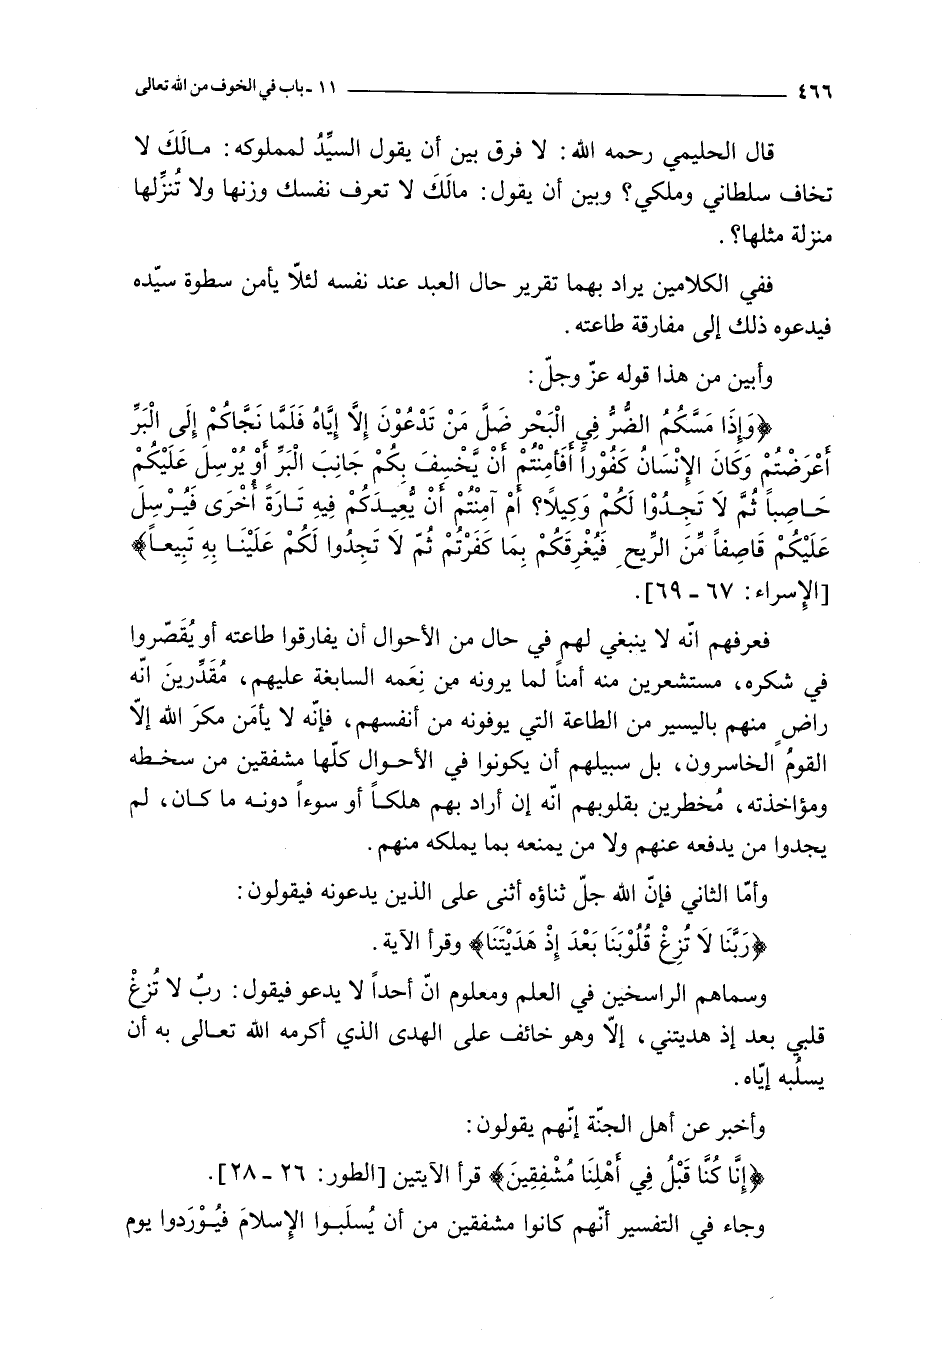 ٤٦٦ ــــــــــــــــــ ١١ - باب في الخوف من الله تعالى
قال الحليمي رحمه الله: لا فرق بين أن يقول السيِّدُ لمملوكه: مـالَكَ لا
تخاف سلطاني وملكي؟ وبين أن يقول: مالَكَ لا تعرف نفسك وزنها ولا تُنزِّلها
منزلة مثلها؟.
ففي الكلامين يراد بهما تقرير حال العبد عند نفسه لئلّا يأمن سطوة سيّده
فيدعوه ذلك إلى مفارقة طاعته.
وأبين من هذا قوله عزّ وجلّ:
﴿وَإِذَا مَسَّكُمُ الضُّرُّ فِي الْبَحْرِ ضَلَّ مَنْ تَدْعُوْنَ إِلاَّ إِيَّاهُ فَلَمَّا نَجَّاكُمْ إِلَى الْبَرِّ
أَعْرَضْتُمْ وَكَانَ الإِنْسَانُ كَفُوْراً أَفَأَمِنْتُمْ أَنْ يَّخْسِفَ بِكُمْ جَانِبَ الْبَرِّ أَوْ يُرْسِلَ عَلَيْكُمْ
حَـاصِباً ثُمَّ لَا تَجِـدُوْا لَكُمْ وَكِيلاً؟ أَمْ آمِنْتُمْ أَنْ يُّعِيـدَكُمْ فِيهِ تَـارَةً أُخْرَى فَيُـرْسِلَ
عَلَيْكُمْ قَاصِفاً مِّنَ الرِّيحِ فَيُغْرِقَكُمْ بِمَا كَفَرْتُمْ ثُمّ لَا تَجِدُوا لَكُمْ عَلَيْنَـا بِهِ تَبِيعـاً﴾
[الإسراء: ٦٧ - ٦٩].
فعرفهم انّه لا ينبغي لهم في حال من الأحوال أن يفارقوا طاعته أو يُقَصّروا
في شكره، مستشعرين منه أمناً لما يرونه مِن نِعَمه السابغة عليهم، مُقَدِّرينَ انّه
راضٍ منهم باليسير من الطاعة التي يوفونه من أنفسهم، فإنّه لا يأمَن مكرَ الله إلاّ
القومُ الخاسرون، بل سبيلهم أن يكونوا في الأحـوال كلّها مشفقين من سخـطه
ومؤاخذته، مُخطرين بقلوبهم انّه إن أراد بهم هلكـاً أو سوءاً دونـه ما كـان، لم
يجدوا من يدفعه عنهم ولا من يمنعه بما يملكه منهم.
وأمّا الثاني فإنّ الله جلّ ثناؤه أثنى على الذين يدعونه فيقولون:
﴿رَبَّنَا لَا تُزِغْ قُلُوْبَنَا بَعْدَ إِذْ هَدَيْتَنَا﴾ وقرأ الآية.
وسماهم الراسخين في العلم ومعلوم انّ أحداً لا يدعو فيقول: ربّ لا تُزغْ
قلبي بعد إذ هديتني، إلاّ وهو خائف على الهدى الذي أكرمه الله تعـالى به أن
يسلُبه إيّاه.
وأخبر عن أهل الجنّة إنّهم يقولون:
﴿إِنَّا كُنَّا قَبْلُ فِي أَهْلِنَا مُشْفِقِينَ﴾ قرأ الآيتين [الطور: ٢٦ - ٢٨].
وجاء في التفسير أنّهم كانوا مشفقين من أن يُسلَبـوا الإسلامَ فَيُـوْرَدوا يوم